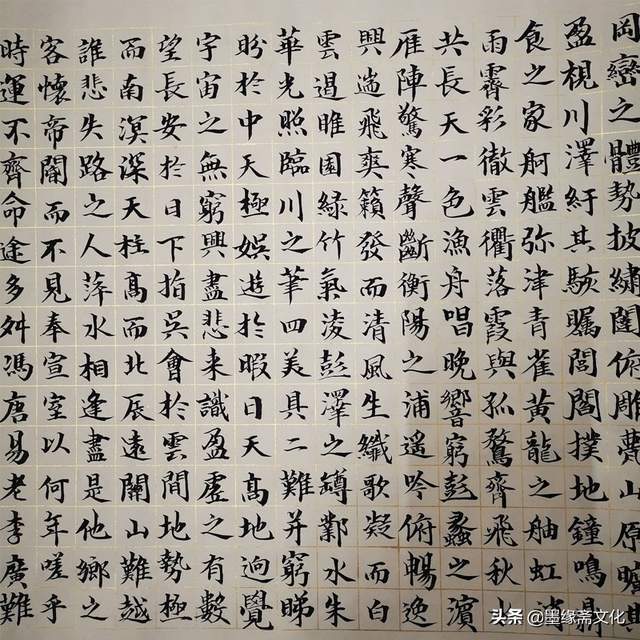 岡巒之體勢披繡闥俯雕甍山原曠
盈視川澤紆其駭矚閭閻撲地鐘鳴鼎
食之家舸艦弥津青雀黃龍之舳虹
雨霽彩徹雲衢落霞與孤鶩齊飛秋水
共長天一色漁舟唱晚響窮彭蠡之濱
雁陣驚寒聲斷衡陽之浦遙吟俯暢逸
興遄飛爽籟發而清風生纖歌凝而白
雲遏睢園綠竹氣凌彭澤之罇鄴水朱
華光照臨川之筆四美具二難并窮睇
盼於中天極娛遊於暇日天高地迥覺
宇宙之無窮興盡悲来識盈虛之有數
望長安於日下指吳會於雲間地勢極
而南溟深天柱高而北辰遠關山難越
誰悲失路之人萍水相逢盡是他鄉之
客懷帝閽而不見奉宣室以何年嗟乎
時運不齊命途多舛馮唐易老李廣難
头条 @墨缘斋文化